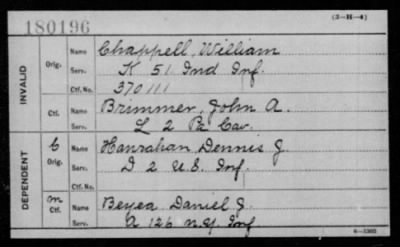 180196
(3-H-4)
INVALID
Orig.
Name Chappell, William
Serv. K 51 Ind Inf.
Ctf. No. 370111
Ctf.
Name Brimmer, John A.
Serv. L 2 Pa Cav.
DEPENDENT
C
Orig.
Name Hanrahan Dennis J
Serv. D 2 U.S. Inf.
Ctf. No.
m
Ctf.
Name Beyea Daniel J.
Serv. A 126 N.Y. Inf